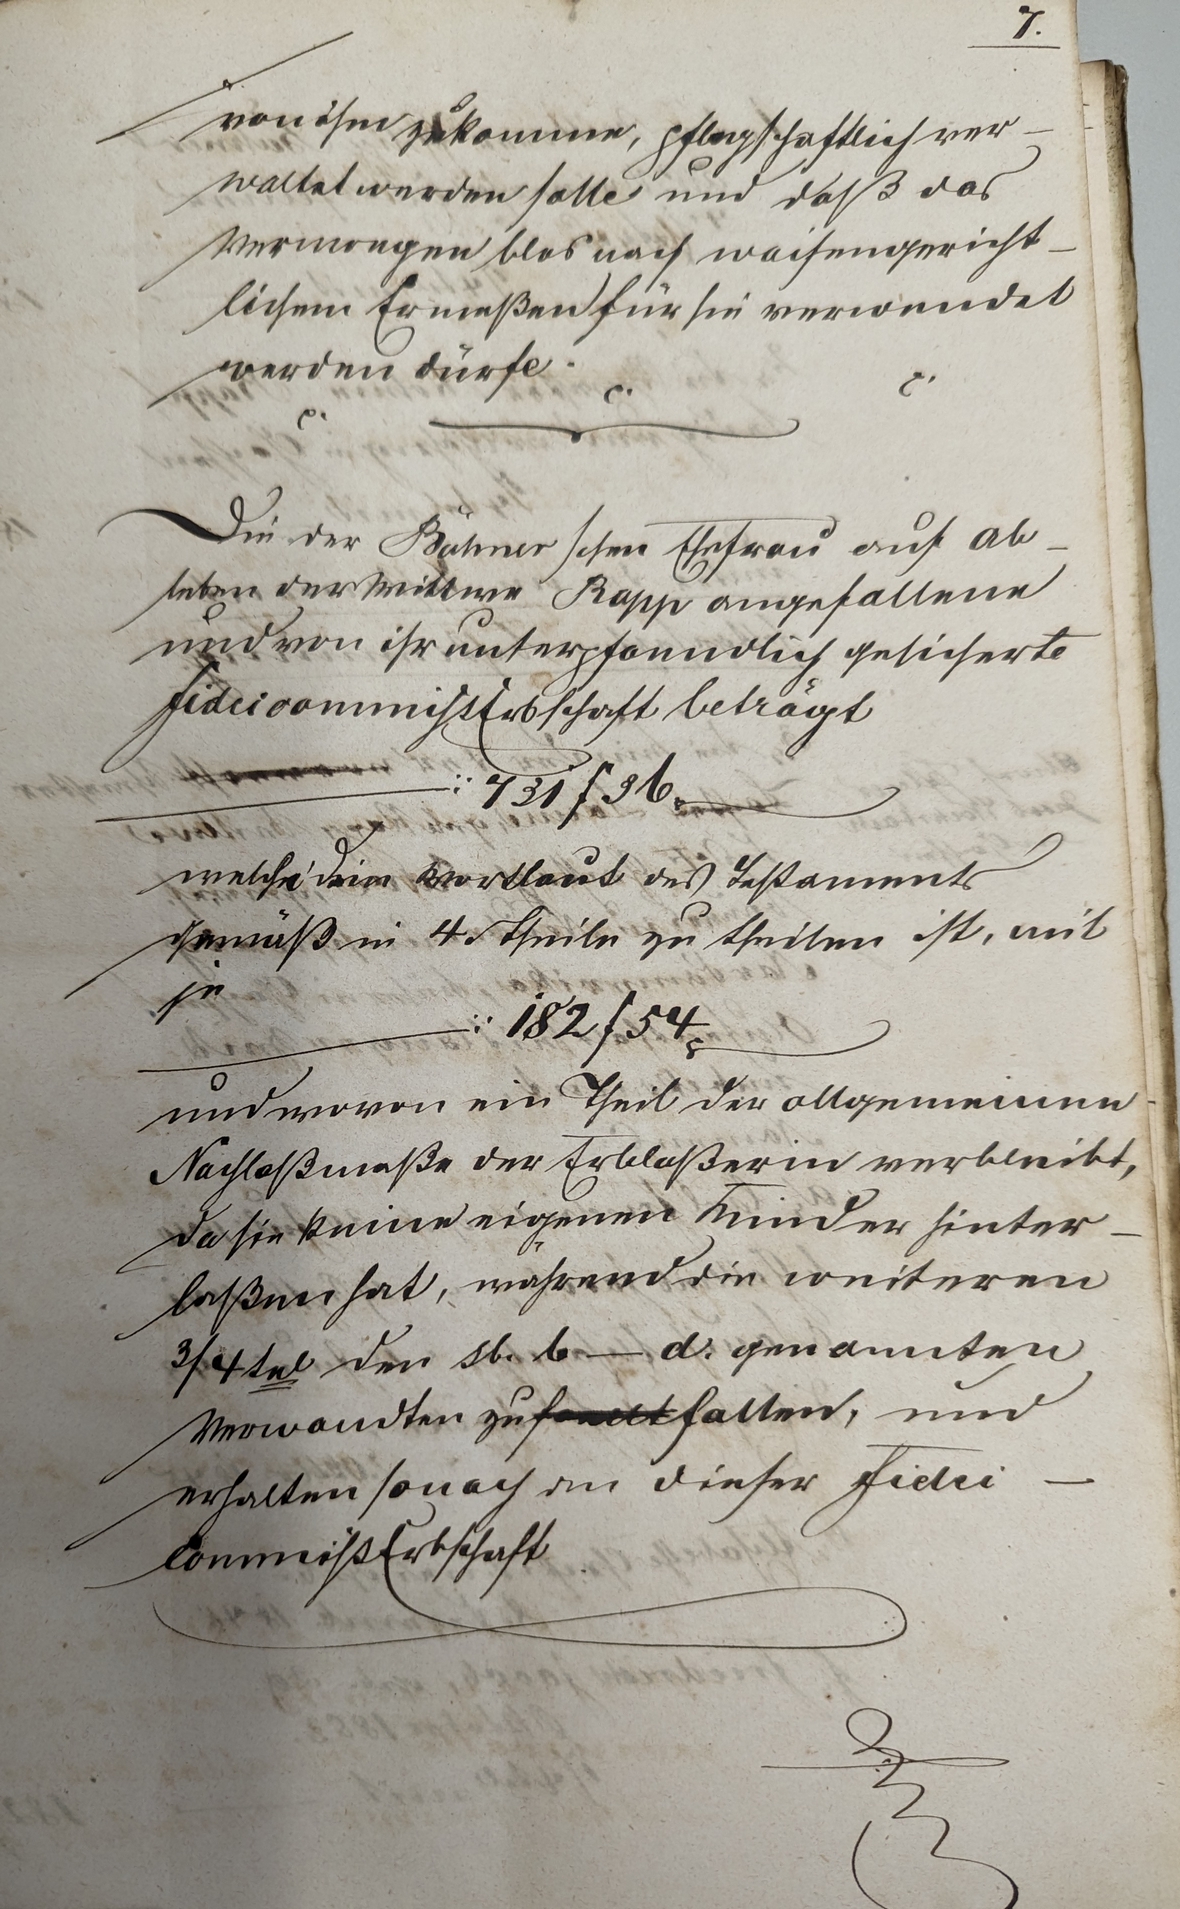 7.
von ihm zukomme, pflegschaftlich ver-
waltet werden solle und daß das
Vermoegen blos nach waisengericht-
lichem Ermeßen für sie verwendet
werden dürfe.
Die der Böhmer'schen Ehefrau auf Ab-
leben der Wittwe Rapp angefallene
und von ihr unterpfaendlich gesicherte
FideicommißErbschaft beträgt
:: 731 f 36.
welche dem Wortlaut des Testaments
gemäß in 4 Theile zu theilen ist, mit
je
:: 182 f 54
und wovon ein Theil der allgemeinen
Nachlaßmaße der Erblaßerin verbleibt,
da sie keine eigenen Kinder hinter-
laßen hat, während die weiteren
3/4tel den sb. b — d. genannten
Verwandten zufallen, und
erhalten sonach an dieser Fidei-
commißErbschaft